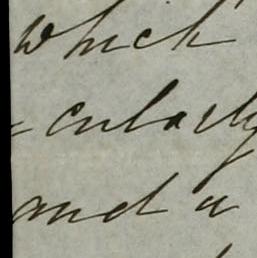 which
= cularly
and a